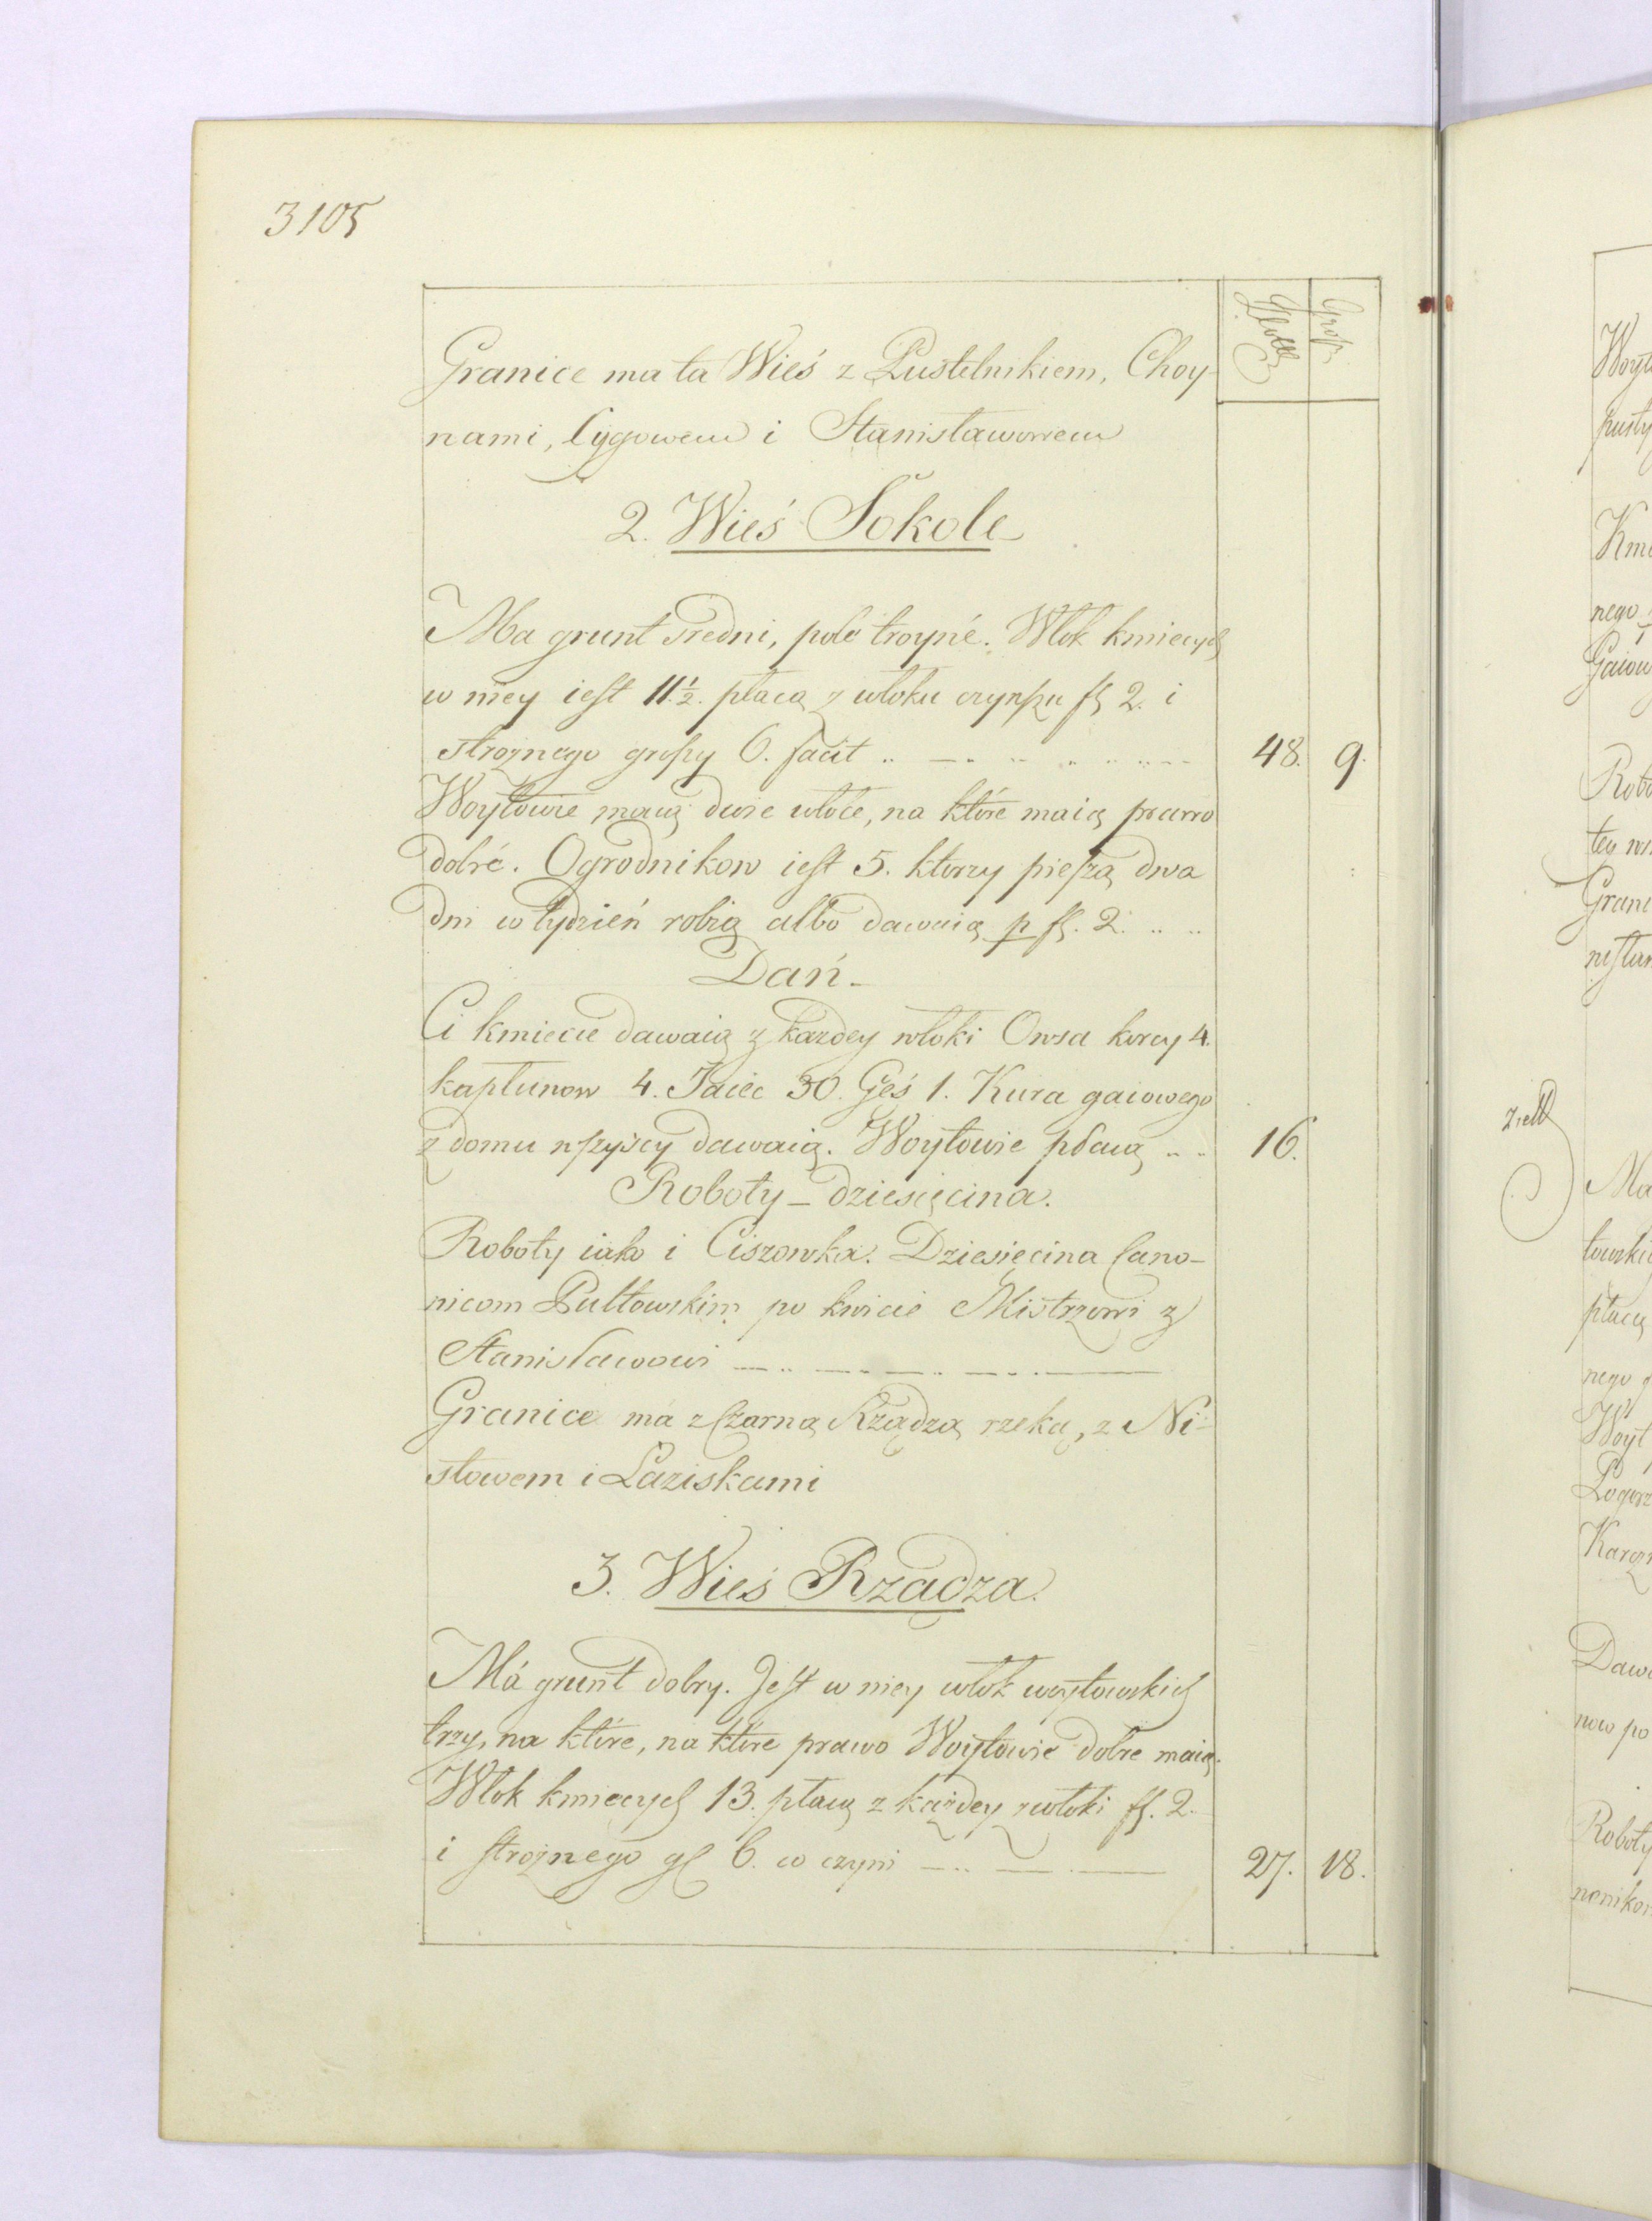 3105
Złott Gross
Granice ma ta Wieś z Pustelnikiem, Choy-
nami, Cygowem i Stanisławowem
2. Wieś Sokole
Ma grunt sredni, pole troynè. Włok kmiecych
w niey iest 11½. płacą z włoku czynszu fl 2. i
strożnego groszy 6. facit 48. 9.
Woytowie maią dwie włoce, na które maią prawo
dobré. Ogrodnikow iest 5. ktorzy pieszą dwa
dni w tydzień robią albo dawaią p fl. 2.
Dań
Ci kmiecie dawaią z każdey włoki Owsa korcy 4.
kapłunow 4. Jaiec 30. Gęś 1. Kura gaiowego
z domu wszyscy dawaią. Woytowie płacą 16.
Roboty – dziesięcina.
Roboty iako i Ciszowka. Dziesięcina Cano-
nicom Pułtowskim po kwicie Mistrzowi z
Stanisławowi
Granice má z Czarną Rządzą rzeką, z Ni-
stowem i Laziskami
3. Wieś Rządza
Má grunt dobry. Jest w niey włok woytowskich
trzy, na które, na które prawo Woytowie dobre maią.
Włok kmiecych 13. płacą z każdey włoki fl. 2.
i strożnego gl 6. co czyni 27. 18.